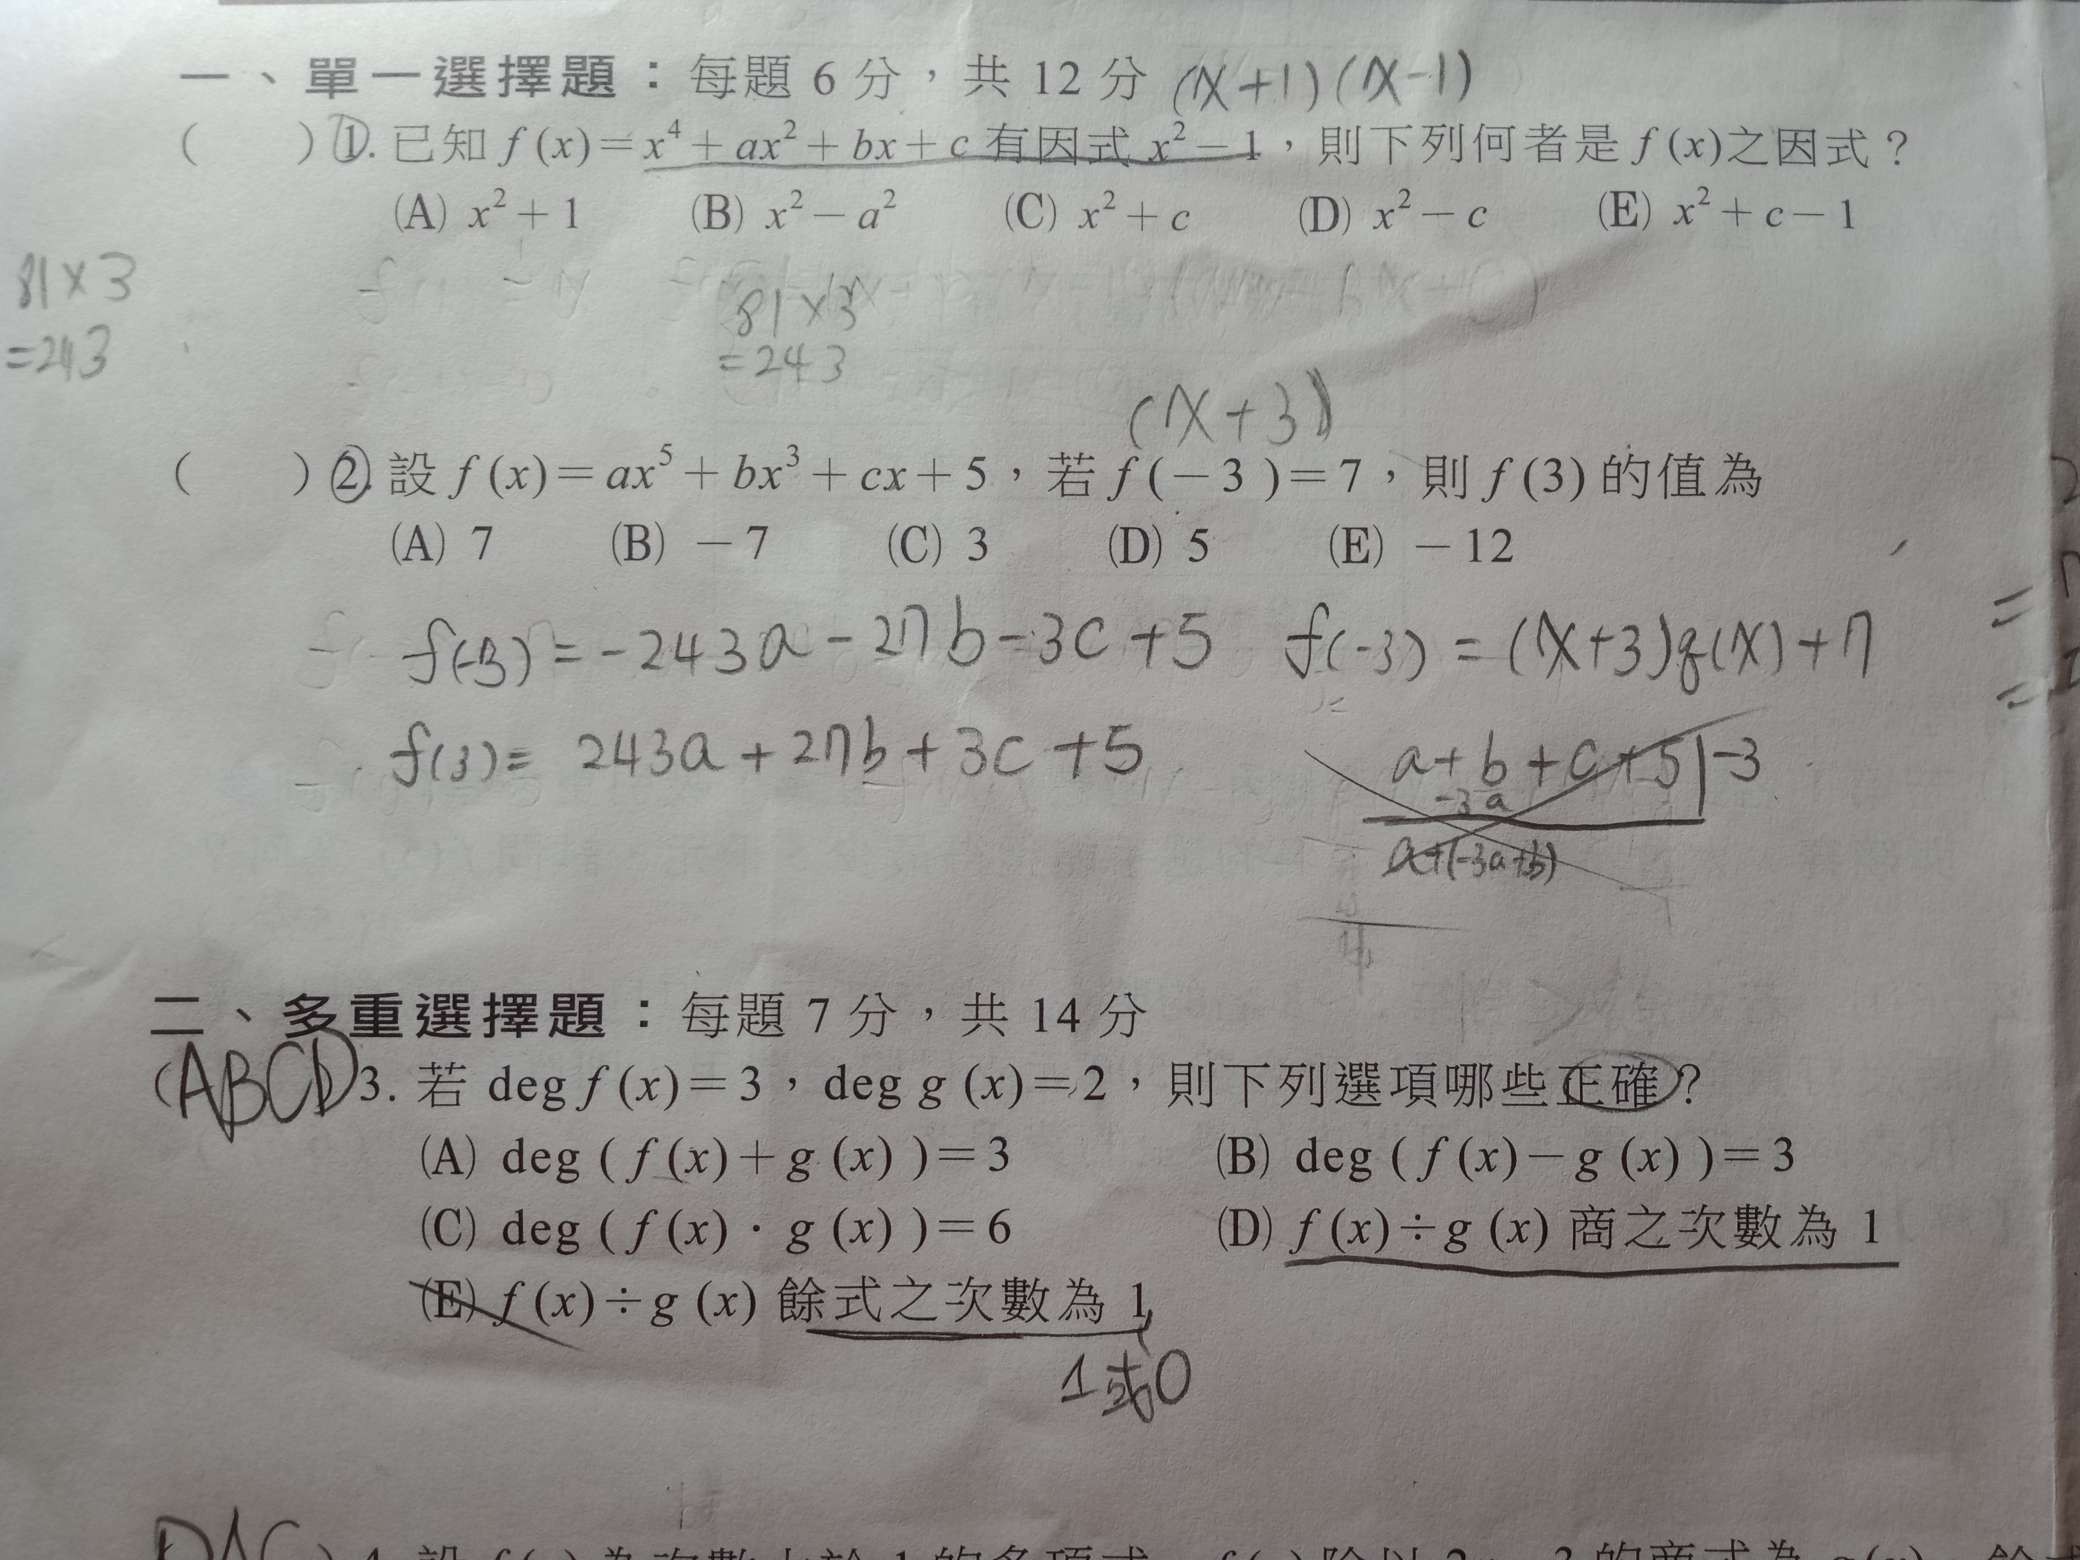 一、單一選擇題：每題 6 分，共 12 分 (x+1)(x-1)
(　)1. 已知 f(x)=x⁴+ax²+bx+c 有因式 x²-1，則下列何者是 f(x)之因式？
(A) x²+1　(B) x²-a²　(C) x²+c　(D) x²-c　(E) x²+c-1
81×3
=243
81×3
=243
(x+3)
(　)2. 設 f(x)=ax⁵+bx³+cx+5，若 f(-3)=7，則 f(3) 的值為
(A) 7　(B) -7　(C) 3　(D) 5　(E) -12
f(-3)=-243a-27b-3c+5　f(-3)=(x+3)q(x)+7
f(3)=243a+27b+3c+5
a+b+c+5|-3
-3a
a+(-3a+b)
二、多重選擇題：每題 7 分，共 14 分
(ABCD)3. 若 deg f(x)=3，deg g(x)=2，則下列選項哪些正確？
(A) deg(f(x)+g(x))=3　(B) deg(f(x)-g(x))=3
(C) deg(f(x)·g(x))=6　(D) f(x)÷g(x) 商之次數為 1
(E) f(x)÷g(x) 餘式之次數為 1
1或0